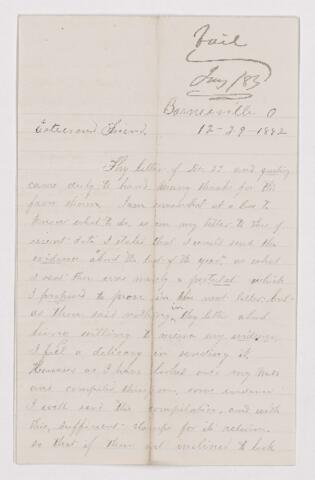 fail
Jany 1883
Barnesville O
12-29-1882
Esteemed Friend,
Thy letter of Dec 22 and
came duly to hand many thanks for the
favor shown. I am somewhat at a loss to
know what to do, as in my letter to thee of
recent date I stated that I would send the
evidence "about the last of the year," as what
I sent then was merely a postulate which
I proposed to prove in the next letter. but
as thee said nothing in thy letter about
being willing to receive my evidence
I feel a delicacy in sending it.
However as I have looked over my notes
and compiled some evidence
I will send the compilation, and with
this, sufficient stamps for its return.
so that if thee art not inclined to look